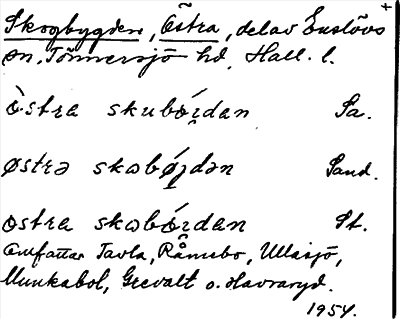 Skogbygden, Östra, del av Enslövs
sn, Tönnersjö hd, Hall. l.
òstra skubǿrdan Sa.
østrə skabǿrdən Sand.
ostra skabǿrdan St.
Omfattar Tavla, Råmebo, Ullasjö,
Munkabol, Grevalt o. Havraryd.
1954.